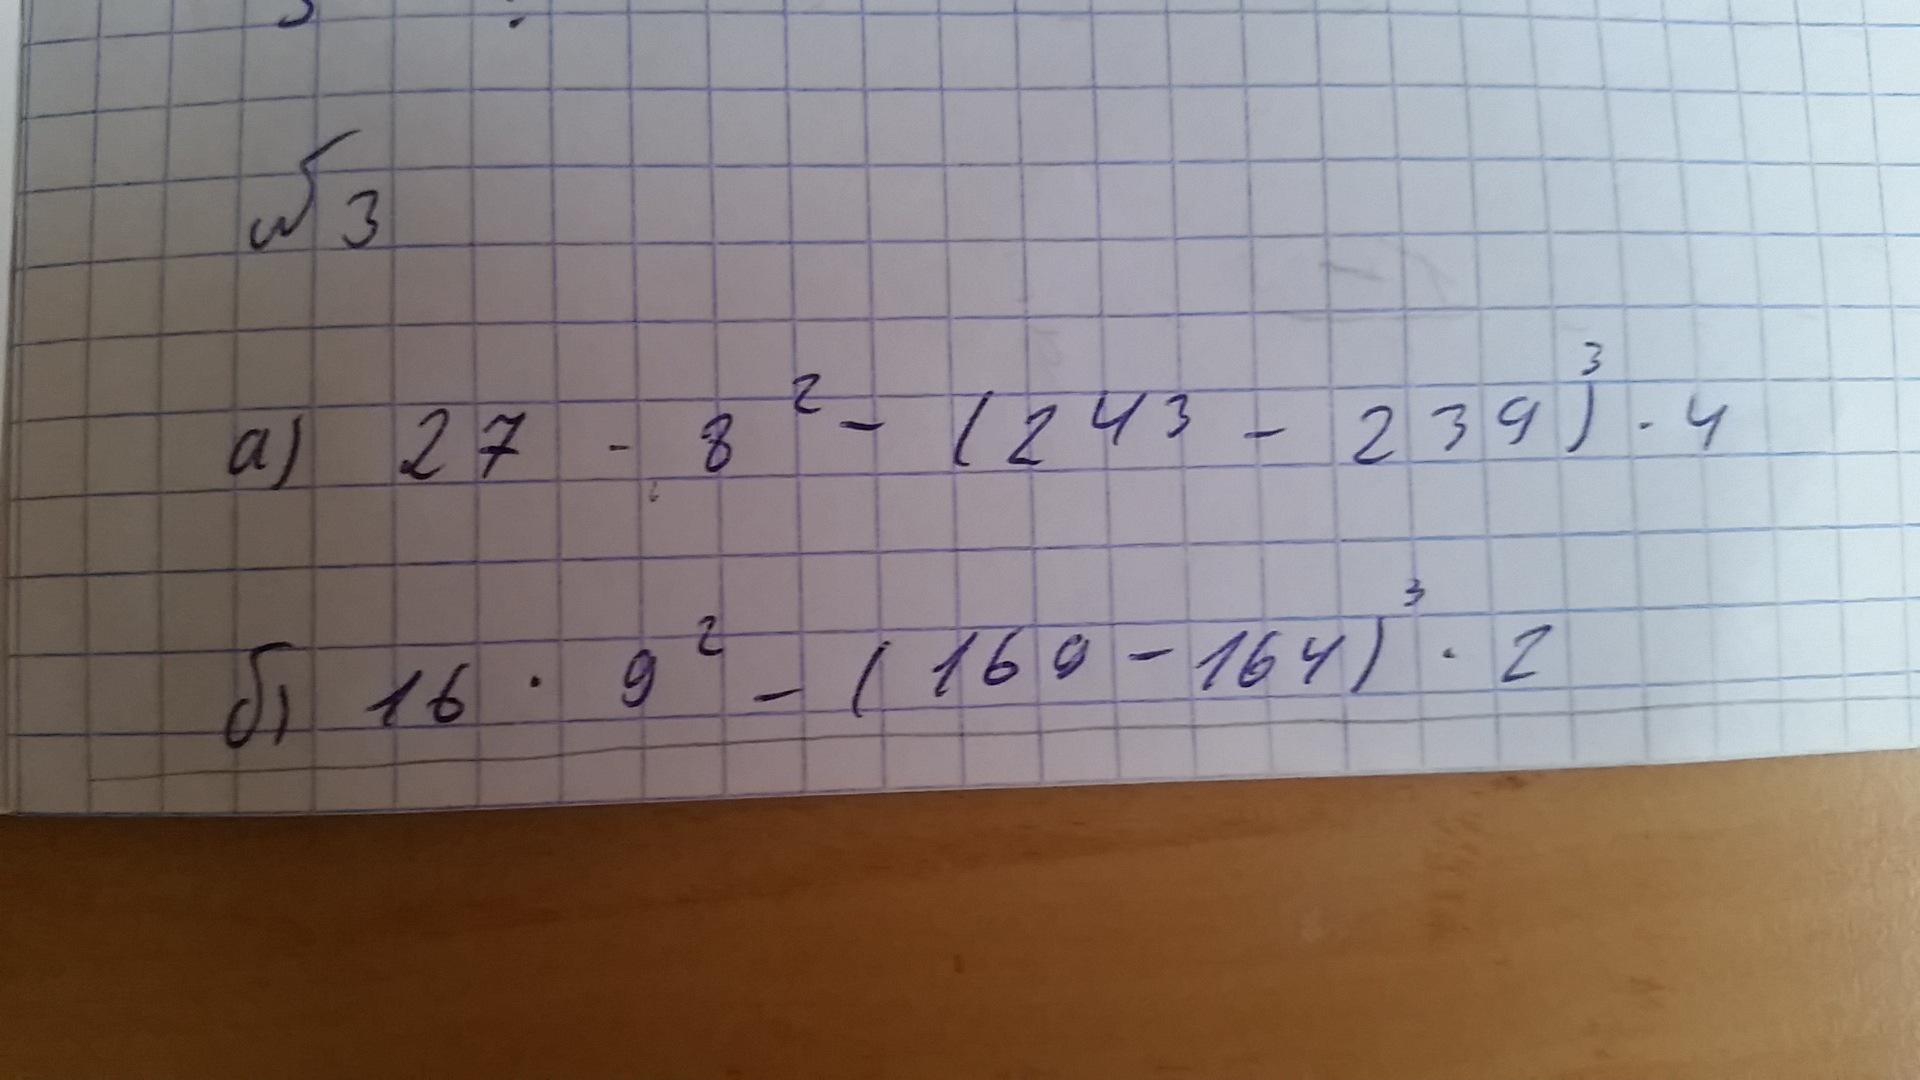 № 3
а) 27 · 8² - (243 - 239)³ · 4
б) 16 · 9² - (169 - 164)³ · 2